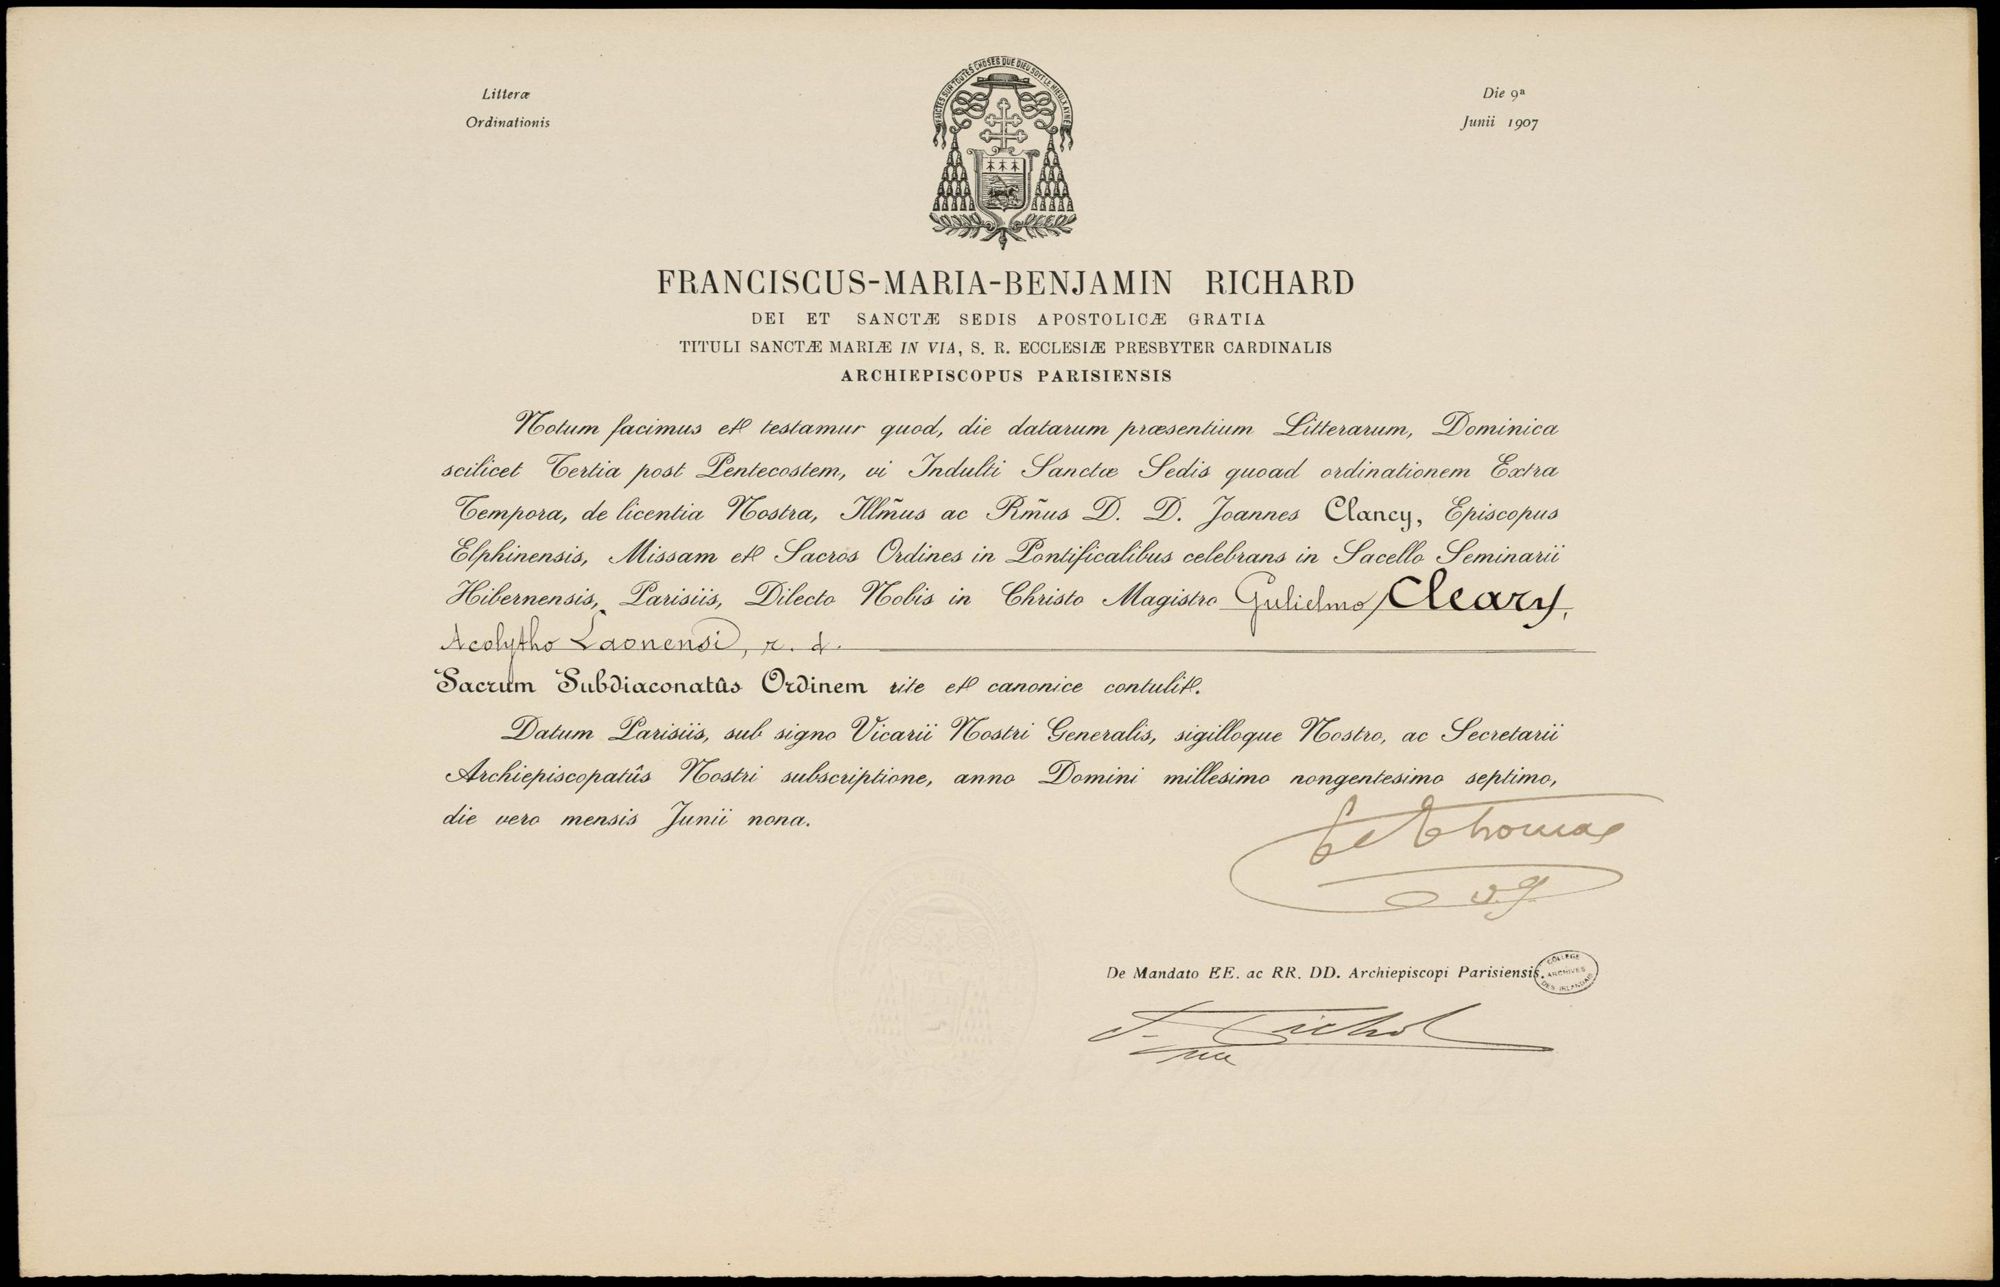 Litteræ
Ordinationis
Die 9ª
Junii 1907
FAICTES SUR TOUTES CHOSES QUE DIEU SOYT LE MIEULX AYMÉ
FRANCISCUS-MARIA-BENJAMIN RICHARD
DEI ET SANCTÆ SEDIS APOSTOLICÆ GRATIA
TITULI SANCTÆ MARIÆ IN VIA, S. R. ECCLESIÆ PRESBYTER CARDINALIS
ARCHIEPISCOPUS PARISIENSIS
Notum facimus et testamur quod, die datarum præsentium Litterarum, Dominica
scilicet Tertia post Pentecostem, vi Indulti Sanctæ Sedis quoad ordinationem Extra
Tempora, de licentia Nostra, Illm̃us ac Rm̃us D. D. Joannes Clancy, Episcopus
Elphinensis, Missam et Sacros Ordines in Pontificalibus celebrans in Sacello Seminarii
Hibernensis, Parisiis, Dilecto Nobis in Christo Magistro Gulielmo Cleary,
Acolytho Laonensi, r. d.
Sacrum Subdiaconatûs Ordinem rite et canonice contulit.
Datum Parisiis, sub signo Vicarii Nostri Generalis, sigilloque Nostro, ac Secretarii
Archiepiscopatûs Nostri subscriptione, anno Domini millesimo nongentesimo septimo,
die vero mensis Junii nona.
Thomas
v. g.
De Mandato EE. ac RR. DD. Archiepiscopi Parisiensis.
COLLEGE
ARCHIVES
DES IRLANDAIS